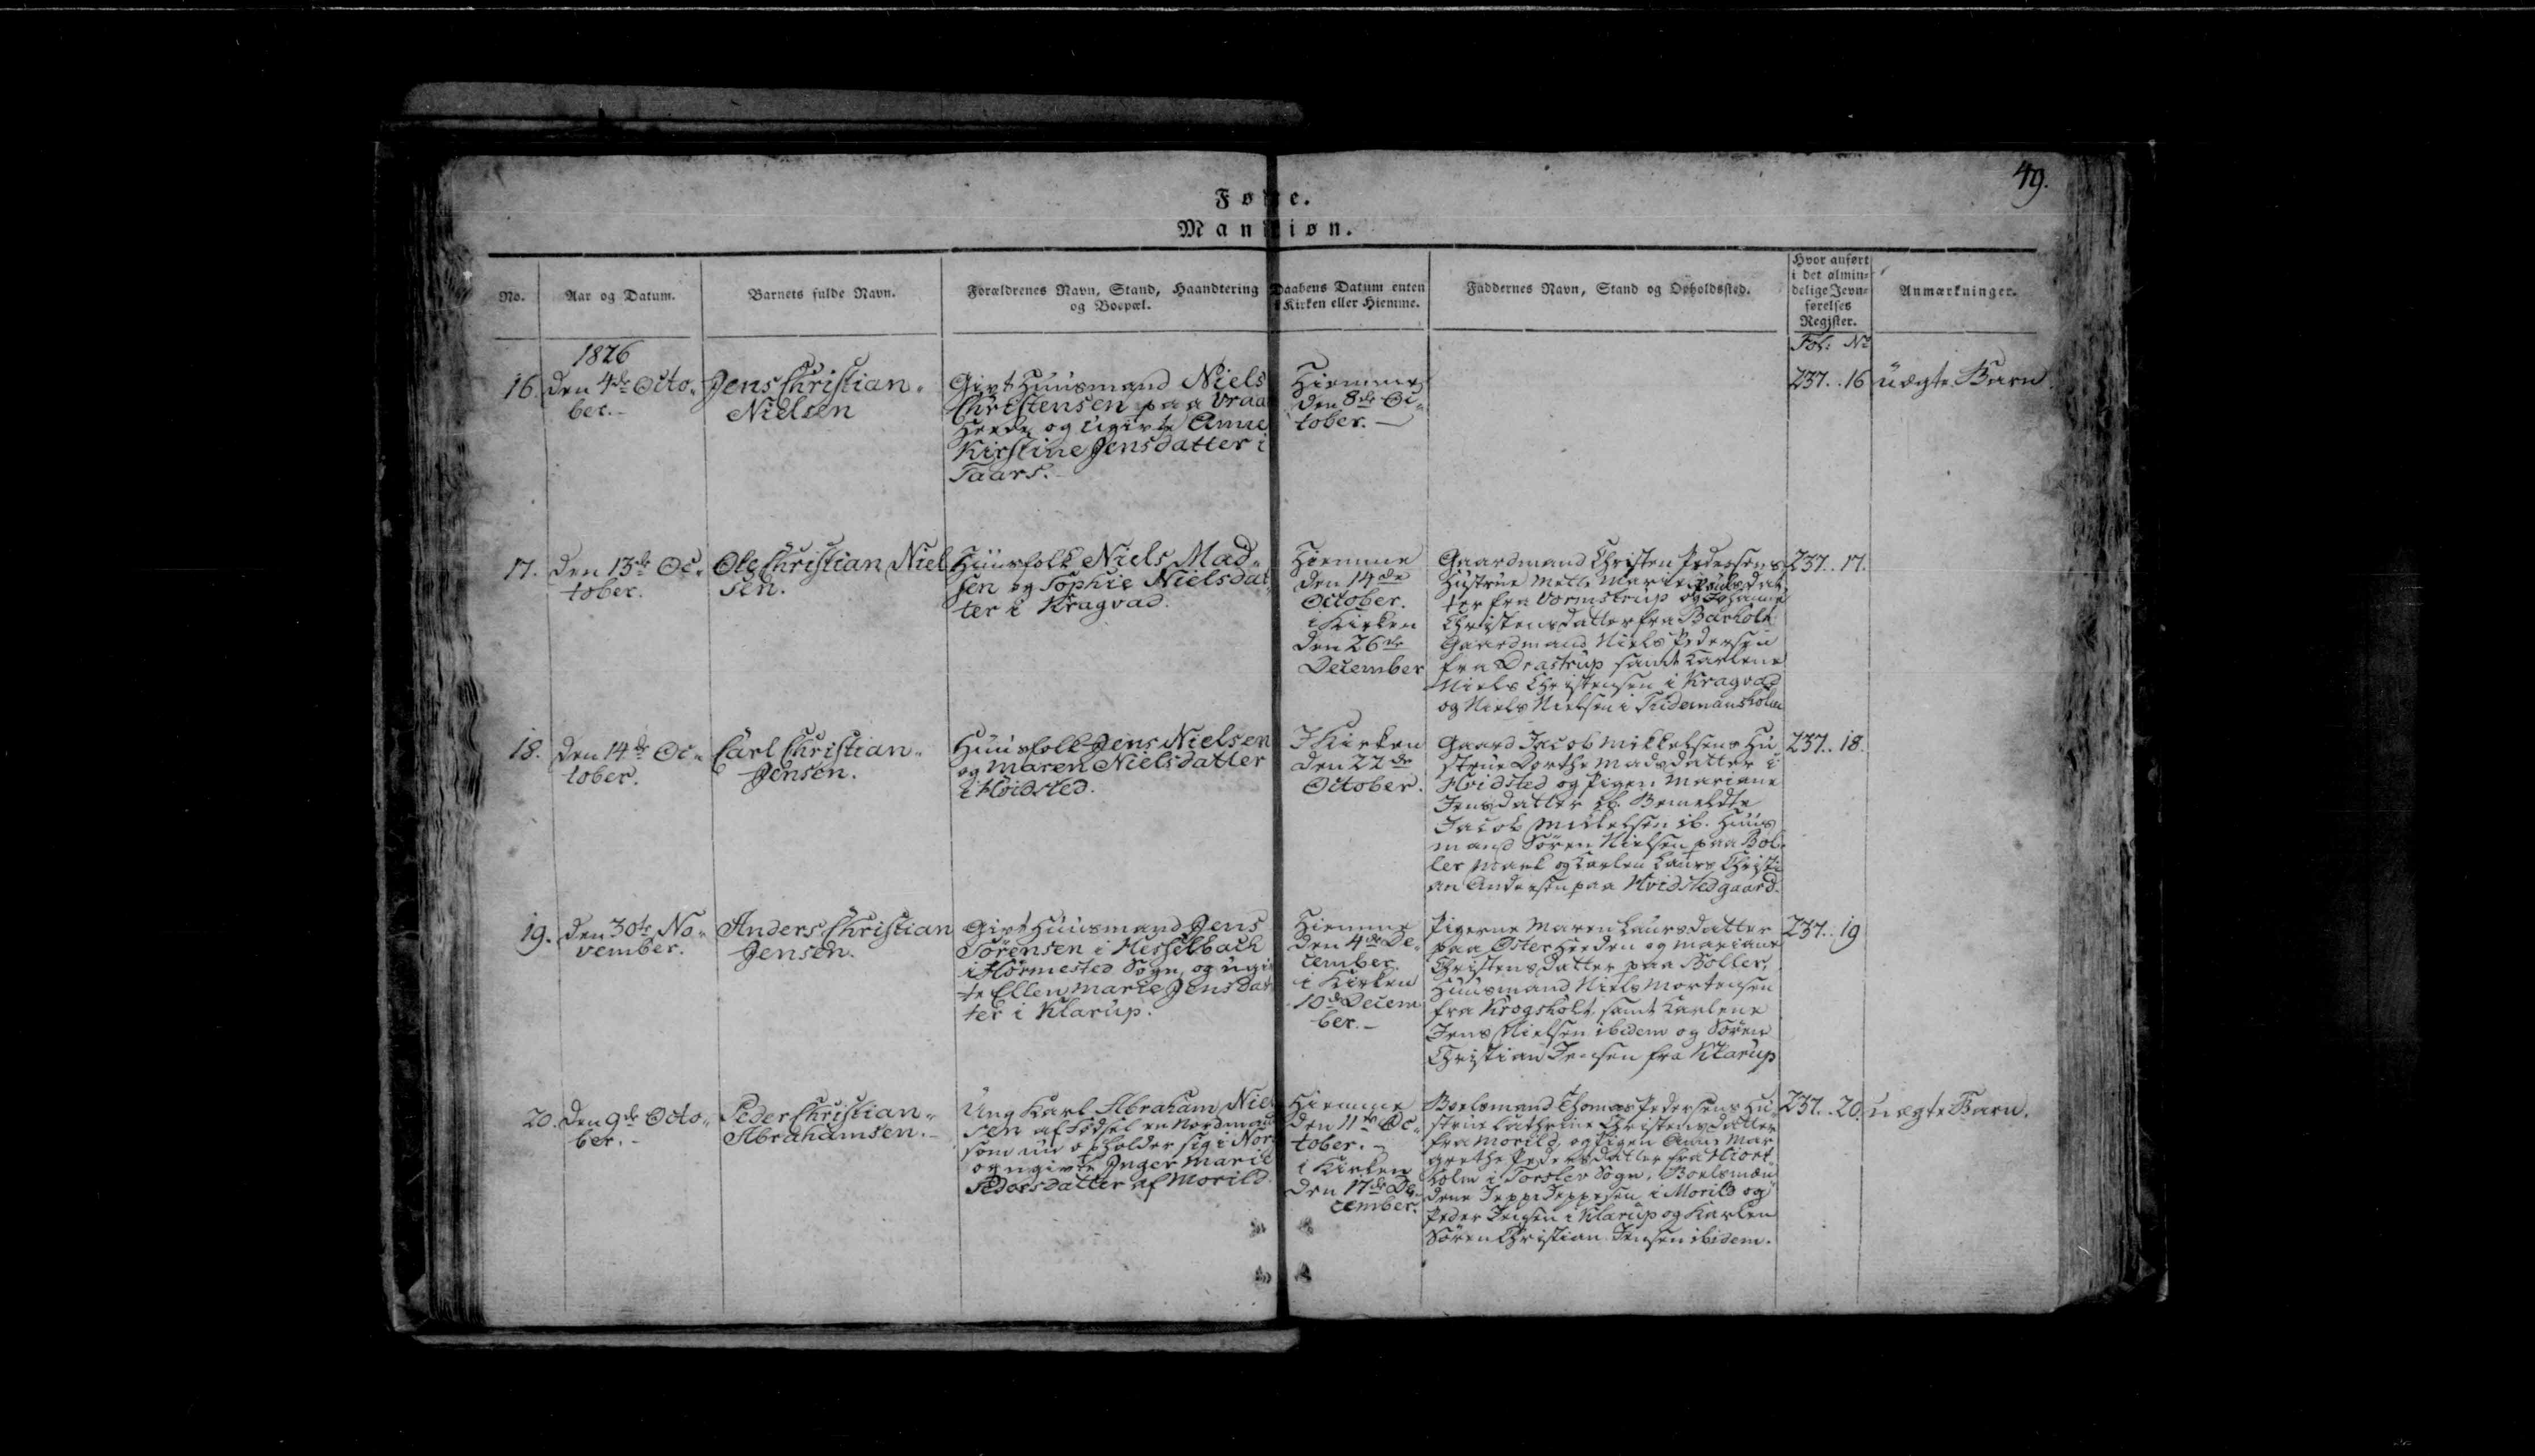 49.
Føde.
Mandkiøn.
No.
Aar og Datum.
Barnets fulde Navn.
Forældrenes Navn, Stand, Haandtering
og Boepæl.
Daabens Datum enten
i Kirken eller Hiemme.
Faddernes Navn, Stand og Opholdssted.
Hvor anført
i det almin-
delige Jevn-
førelses
Register.
Anmærkninger.
Fol: No
1826
16.
den 4de Octo-
ber.-
Jens Christian-
Nielsen
Givt Huusmand Niels
Christensen paa Vraa
Heede og ugivte Anne
Kirstine Jensdatter i
Taars.
Hiemme
den 8de Oc-
tober.-
237. 16
uægte Barn.
17.
den 13de Oc-
tober.
Ole Christian Niel
sen.
Huusfolk Niels Mad-
sen og Sophie Nielsdat
ter i Kragvad.
Hiemme
den 14de
October.
i Kirken
den 26de
December
Gaardmand Christen Pedersens
Hustrue Mette Marie Poulsdat
ter fra Vormstrup og Johanne
Christensdatter fra Barkholt
Gaardmand Niels Pedersen
fra Drastrup samt Karlene
Niels Christensen i Kragvad
og Niels Nielsen i Tidemansholm
237. 17.
18.
den 14de Oc-
tober.
Carl Christian-
Jensen.
Huusfolk Jens Nielsen
og Maren Nielsdatter
i Hvidsted.
I Kirken
den 22de
October.
Gaard Jacob Mikkelsens Hu
strue Dorthe Madsdatter i
Hvidsted og Pigen Mariane
Jensdatter ib. Bemeldte
Jacob Mikkelsen ib. Huus
mand Sören Nielsen paa Bol-
ler Mark og Karlen Laurs Christi
an Andersen paa Hvidstedgaard.
237. 18.
19.
den 30te No-
vember.
Anders Christian
Jensen.
Givt Huusmand Jens
Sörensen i Hesselback
i Hörmested Sogn, og ugiv
te Ellen Marie Jensdat
ter i Klarup.
Hiemme
den 4de De-
cember
i Kirken
10de Decem
ber.-
Pigerne Maren Laursdatter
paa Österheeden og Mariane
Christensdatter paa Boller,
Huusmand Niels Mortensen
fra Krogsholt, samt Karlene
Jens Nielsen ibidem og Sören
Christian Jensen fra Klarup
237. 19
20.
den 9de Octo-
ber.-
Peder Christian-
Abrahamsen.-
Ung Karl Abraham Niel
sen af Födsel en Nordmand
som nu opholder sig i Nor
og ugivte Inger Marie
Pedersdatter af Morild.
Hiemme
den 11te Oc-
tober.-
i Kirken
den 17de De-
cember.
Boelsmand Thomas Pedersens Hu
strue Cathrine Christensdatter
fra Morild, og Pigen Anne Mar
grethe Pedersdatter fra Hiort
holm i Torslev Sogn, Boelsmæn
dene Jeppe Jeppesen i Morild og
Peder Jensen i Klarup og Karlen
Sören Christian Jensen ibidem.
237. 20.
uægte Barn.